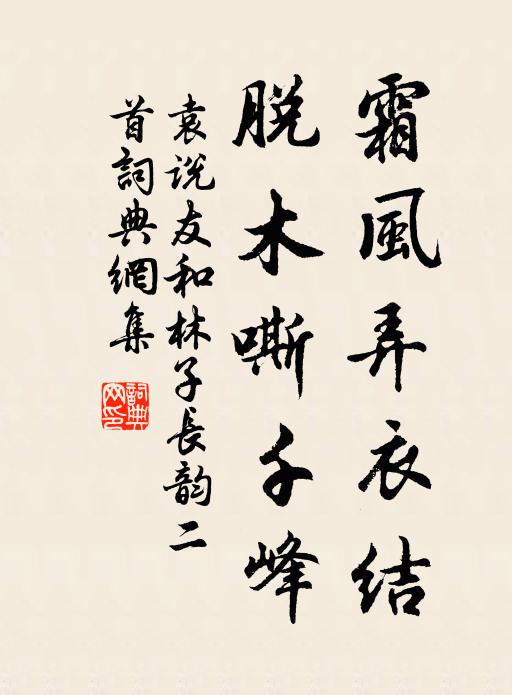 霜風弄衣結
脱木嘶千峰
袁说友和林子長韵二
首詞典網集
詞典網印